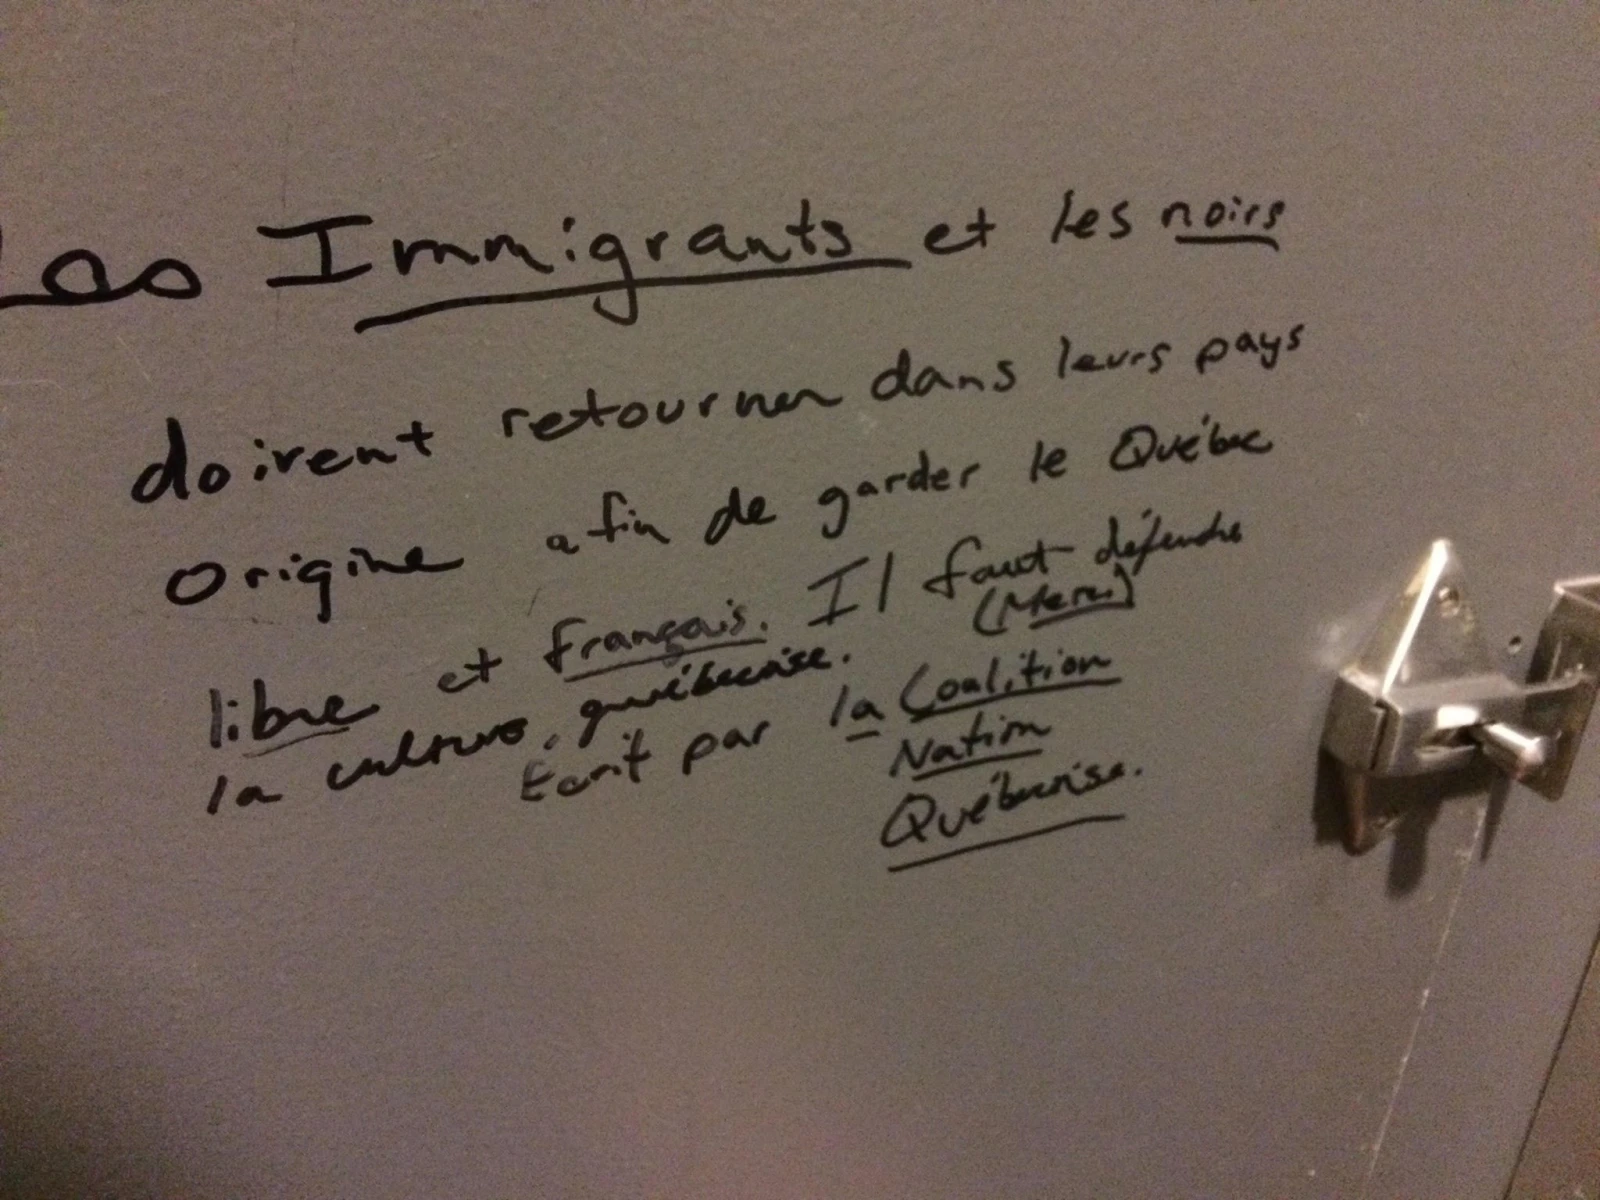 Les Immigrants et les noirs
doivent retourner dans leurs pays
origine afin de garder le Québec
libre et français. Il faut défendre
(Merci)
la culture québécoise.
Écrit par la Coalition
Nation
Québécoise.